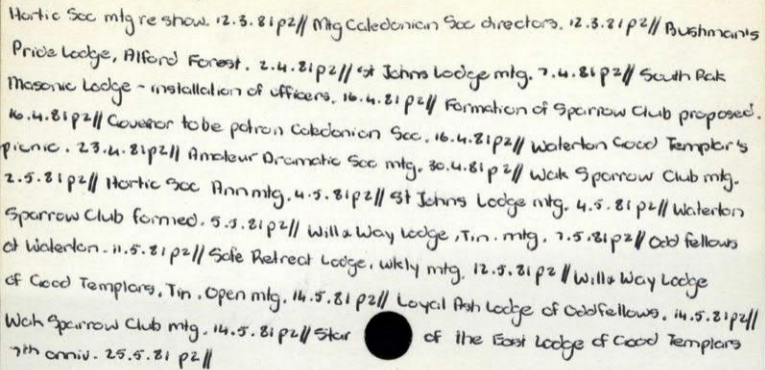 Hortic Soc mtg re show. 12.3.81 p2// Mtg Caledonian Soc directors. 12.3.81 p2// Bushman's
Pride Lodge, Alford Forest. 2.4.81 p2// St Johns Lodge mtg. 7.4.81 p2// South Rak
Masonic Lodge - installation of officers. 16.4.81 p2// Formation of Sparrow Club proposed.
16.4.81 p2// Governor to be patron Caledonian Soc. 16.4.81 p2// Waterton Good Templar's
picnic. 23.4.81 p2// Amateur Dramatic Soc mtg. 30.4.81 p2// Wak Sparrow Club mtg.
2.5.81 p2// Hortic Soc Ann mtg. 4.5.81 p2// St Johns Lodge mtg. 4.5.81 p2// Waterton
Sparrow Club formed. 5.5.81 p2// Will & Way Lodge, Tin. mtg. 7.5.81 p2// Odd fellows
at Waterton. 11.5.81 p2// Safe Retreat Lodge, wkly mtg. 12.5.81 p2// Will & Way Lodge
of Good Templars, Tin. Open mtg. 14.5.81 p2// Loyal Ash Lodge of Oddfellows. 14.5.81 p2//
Wak Sparrow Club mtg. 14.5.81 p2// Star of the East Lodge of Good Templars
7th anniv. 25.5.81 p2//